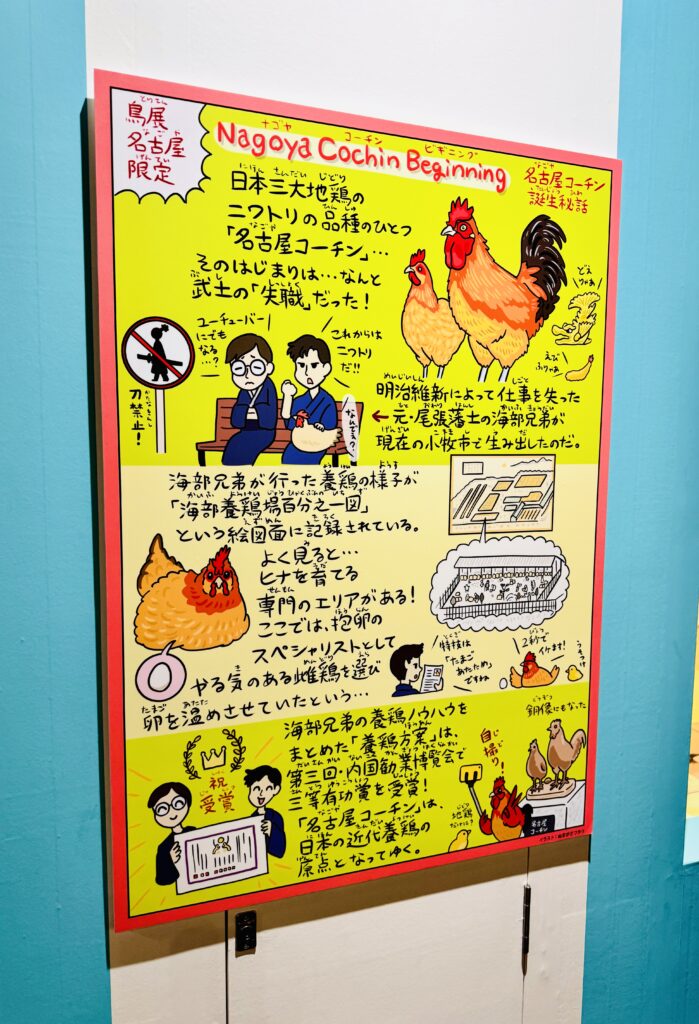 鳥展
名古屋
限定
Nagoya Cochin Beginning
ナゴヤ コーチン ビギニング
名古屋コーチン
誕生秘話
日本三大地鶏の
ニワトリの品種のひとつ
「名古屋コーチン」…
そのはじまりは…なんと
武士の「失職」だった！
どえ
りゃあ
えび
ふりゃあ
刀禁止！
ユーチューバー
にでも
なる
…？
これからは
ニワトリ
だ!!
なんでぇ？
明治維新によって仕事を失った
←元・尾張藩士の海部兄弟が
現在の小牧市で生み出したのだ。
海部兄弟が行った養鶏の様子が
「海部養鶏場百分之一図」
という絵図面に記録されている。
よく見ると…
ヒナを育てる
専門のエリアがある！
ここでは、抱卵の
スペシャリストとして
やる気のある雌鶏を選び
卵を温めさせていたという…
特技は
「たまご
あたため」
ですね
2秒で
イケます！
うそつけ
海部兄弟の養鶏ノウハウを
まとめた「養鶏方案」は、
第三回・内国勧業博覧会で
三等有功賞を受賞！
「名古屋コーチン」は、
日本の近代養鶏の
原点となってゆく。
祝
受賞
銅像にもなった
自撮り！
地鶏
だけに？
名古屋
コーチン